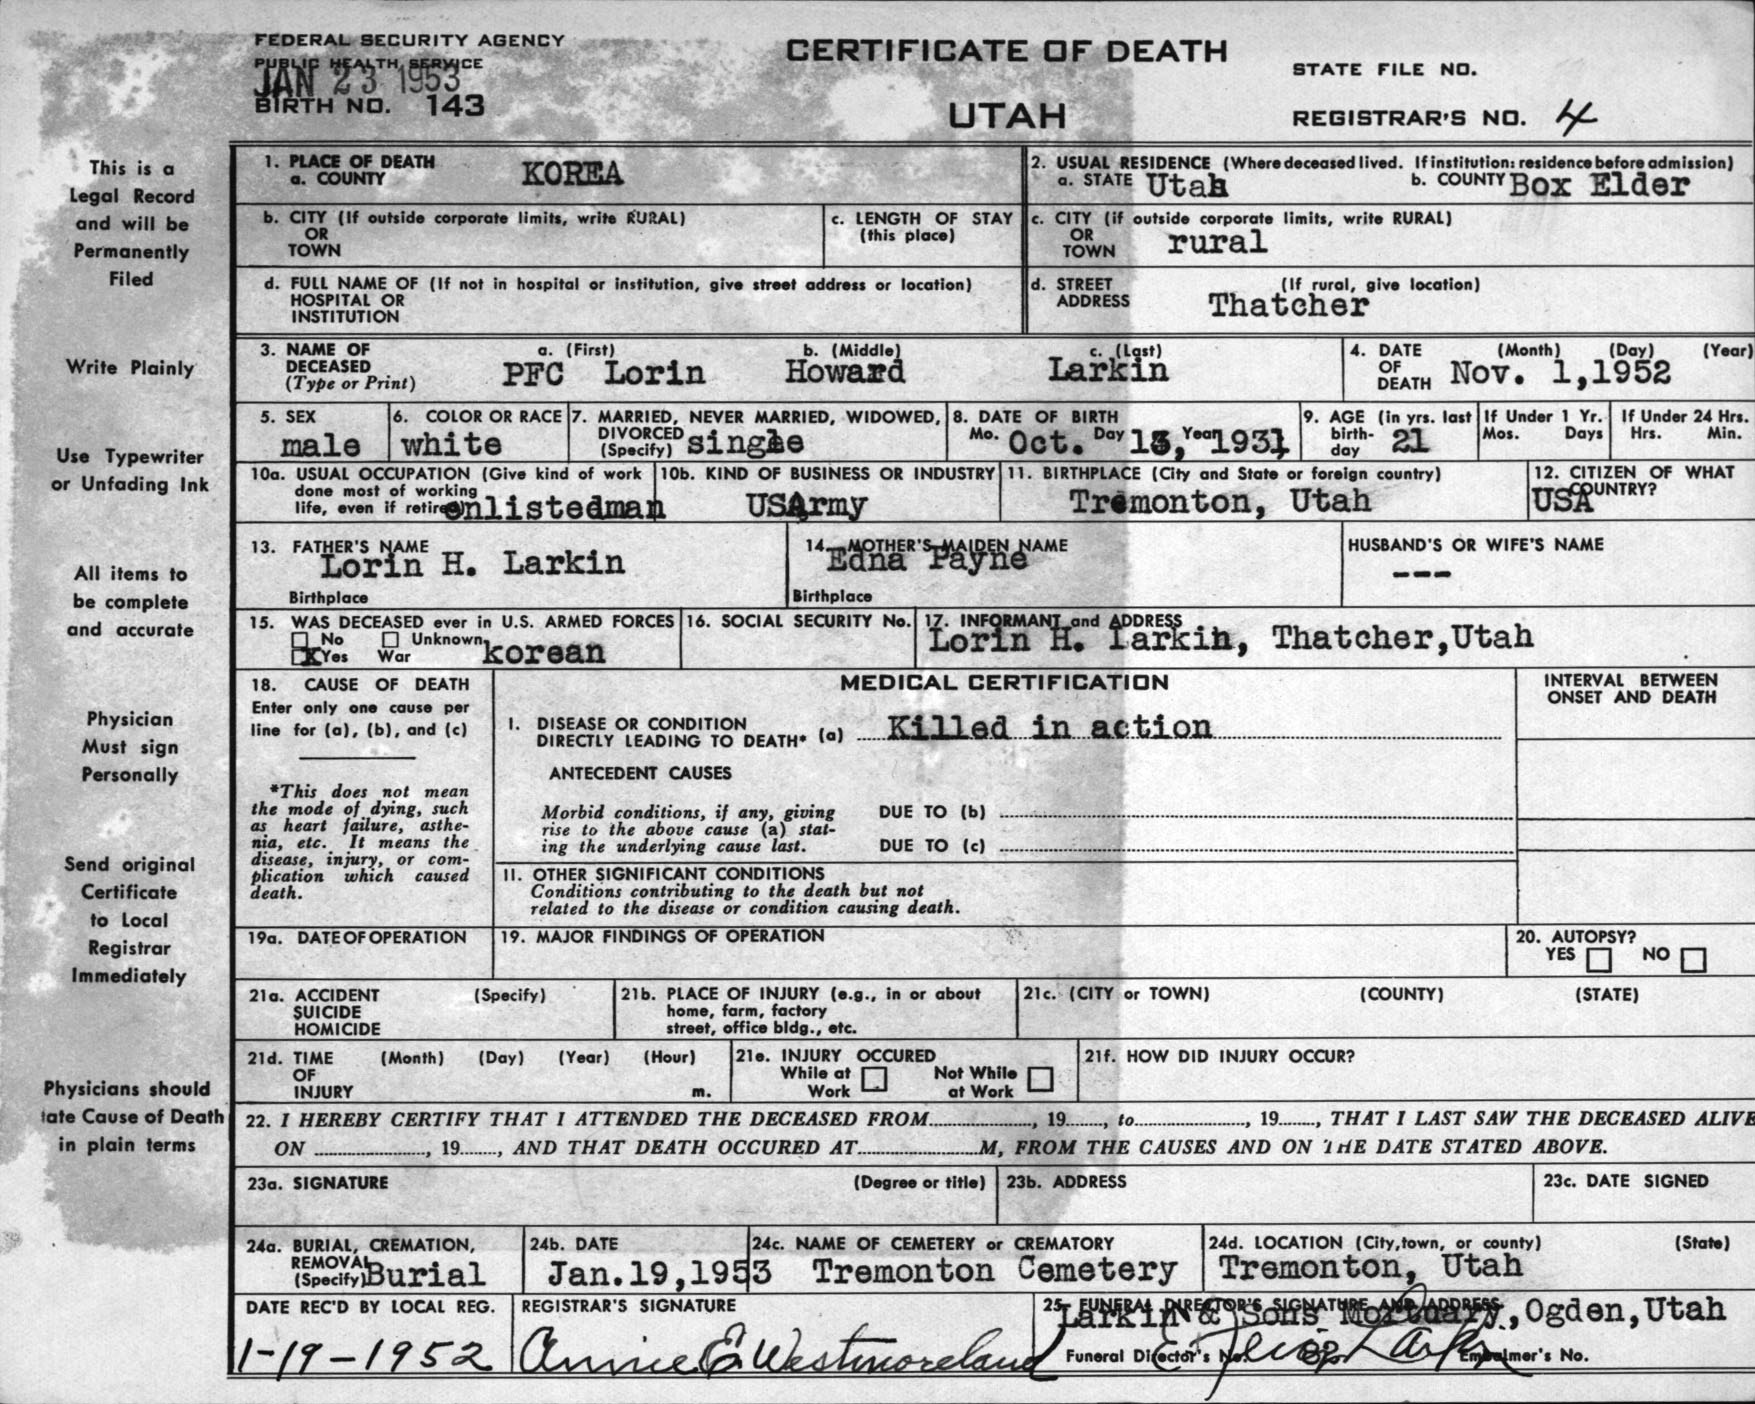 FEDERAL SECURITY AGENCY
PUBLIC HEALTH SERVICE
JAN 23 1953
BIRTH NO. 143
CERTIFICATE OF DEATH
UTAH
STATE FILE NO.
REGISTRAR'S NO. 4
This is a
Legal Record
and will be
Permanently
Filed
Write Plainly
Use Typewriter
or Unfading Ink
All items to
be complete
and accurate
Physician
Must sign
Personally
Send original
Certificate
to Local
Registrar
Immediately
Physicians should
tate Cause of Death
in plain terms
1. PLACE OF DEATH
a. COUNTY KOREA
2. USUAL RESIDENCE (Where deceased lived. If institution: residence before admission)
a. STATE Utah b. COUNTY Box Elder
b. CITY (If outside corporate limits, write RURAL)
OR
TOWN
c. LENGTH OF STAY
(this place)
c. CITY (if outside corporate limits, write RURAL)
OR
TOWN rural
d. FULL NAME OF (If not in hospital or institution, give street address or location)
HOSPITAL OR
INSTITUTION
d. STREET (If rural, give location)
ADDRESS Thatcher
3. NAME OF a. (First) b. (Middle) c. (Last)
DECEASED PFC Lorin Howard Larkin
(Type or Print)
4. DATE (Month) (Day) (Year)
OF
DEATH Nov. 1,1952
5. SEX
male
6. COLOR OR RACE
white
7. MARRIED, NEVER MARRIED, WIDOWED,
DIVORCED
(Specify) single
8. DATE OF BIRTH
Mo. Oct. Day Year 1931
9. AGE (in yrs. last
birth-
day 21
If Under 1 Yr.
Mos. Days
If Under 24 Hrs.
Hrs. Min.
10a. USUAL OCCUPATION (Give kind of work
done most of working
life, even if retired) enlistedman
10b. KIND OF BUSINESS OR INDUSTRY
USArmy
11. BIRTHPLACE (City and State or foreign country)
Tremonton, Utah
12. CITIZEN OF WHAT
COUNTRY?
USA
13. FATHER'S NAME
Lorin H. Larkin
Birthplace
14. MOTHER'S MAIDEN NAME
Edna Payne
Birthplace
HUSBAND'S OR WIFE'S NAME
---
15. WAS DECEASED ever in U.S. ARMED FORCES
No Unknown
X Yes War korean
16. SOCIAL SECURITY No.
17. INFORMANT and ADDRESS
Lorin H. Larkin, Thatcher,Utah
18. CAUSE OF DEATH
Enter only one cause per
line for (a), (b), and (c)
*This does not mean
the mode of dying, such
as heart failure, asthe-
nia, etc. It means the
disease, injury, or com-
plication which caused
death.
MEDICAL CERTIFICATION
I. DISEASE OR CONDITION
DIRECTLY LEADING TO DEATH* (a) Killed in action
ANTECEDENT CAUSES
Morbid conditions, if any, giving
rise to the above cause (a) stat-
ing the underlying cause last.
DUE TO (b)
DUE TO (c)
II. OTHER SIGNIFICANT CONDITIONS
Conditions contributing to the death but not
related to the disease or condition causing death.
INTERVAL BETWEEN
ONSET AND DEATH
19a. DATE OF OPERATION
19. MAJOR FINDINGS OF OPERATION
20. AUTOPSY?
YES NO
21a. ACCIDENT (Specify)
SUICIDE
HOMICIDE
21b. PLACE OF INJURY (e.g., in or about
home, farm, factory
street, office bldg., etc.
21c. (CITY or TOWN) (COUNTY) (STATE)
21d. TIME (Month) (Day) (Year) (Hour)
OF
INJURY m.
21e. INJURY OCCURED
While at Not While
Work at Work
21f. HOW DID INJURY OCCUR?
22. I HEREBY CERTIFY THAT I ATTENDED THE DECEASED FROM........, 19......, to........, 19......, THAT I LAST SAW THE DECEASED ALIVE
ON ........, 19......, AND THAT DEATH OCCURED AT........M, FROM THE CAUSES AND ON THE DATE STATED ABOVE.
23a. SIGNATURE (Degree or title)
23b. ADDRESS
23c. DATE SIGNED
24a. BURIAL, CREMATION,
REMOVAL
(Specify) Burial
24b. DATE
Jan.19,1953
24c. NAME OF CEMETERY or CREMATORY
Tremonton Cemetery
24d. LOCATION (City,town, or county) (State)
Tremonton, Utah
DATE REC'D BY LOCAL REG.
1-19-1952
REGISTRAR'S SIGNATURE
Annie E Westmoreland
25. FUNERAL DIRECTOR'S SIGNATURE AND ADDRESS
Larkin & Sons Mortuary,Ogden,Utah
Funeral Director's No. Embalmer's No.